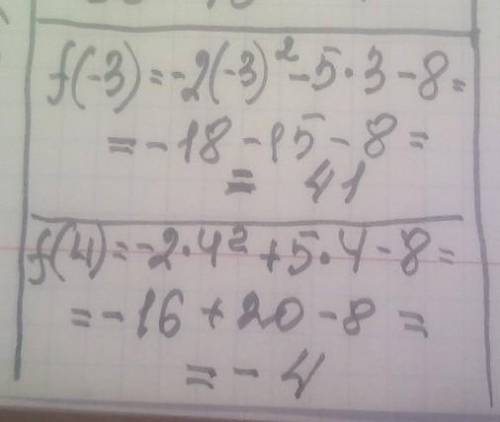 f(-3)=-2(-3)²-5·3-8=
=-18-15-8=
= 41
f(4)=-2·4²+5·4-8=
=-16+20-8=
=-4